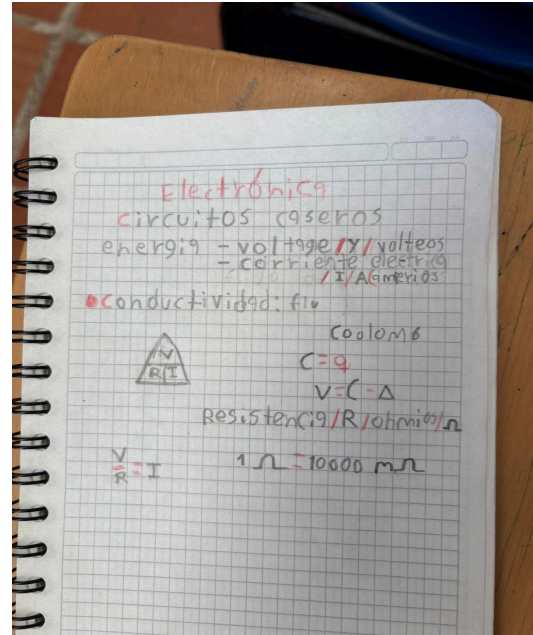 Electrónica
circuitos caseros
energia - voltage /Y/ volteos
- corriente electrica
/I/A
conductividad: flu
Coolomb
C=q
V
R I
V=C-Δ
Resistencia/R/ohmios/Ω
V/R = I
1 Ω = 10000 mΩ